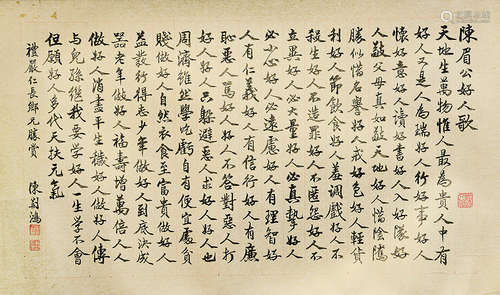 陳眉公好人歌
天地生萬物惟人最為貴人中有
好人又是人為瑞好人行好事好人
懷好意好人讀好書好人入好隊好
人敬父母真如敬天地好人惜陰騭
勝似惜名譽好人戒好色好人輕貨
利好人節飲食好人羞調戲好人不
殺生好人不造罪好人不匿怨好人不
立異好人必大量好人必真摯好人
必少心好人必遠慮好人有理智好
人有仁義好人有信行好人有廉
恥惡人罵好人好人不答對惡人打
好人好人只躲避惡人求好人好人也
周濟雖然學吃虧自有便宜處貧
賤做好人自然衣食至富貴做好人
益發行得志少年做好人到底決成
器老年做好人福壽增萬倍人人
做好人清畫平生穢好人做好人傳
與兒孫繼我要學好人一生學不會
但願好人多代天扶元氣
禮嚴仁長鄉兄勝賞 陳